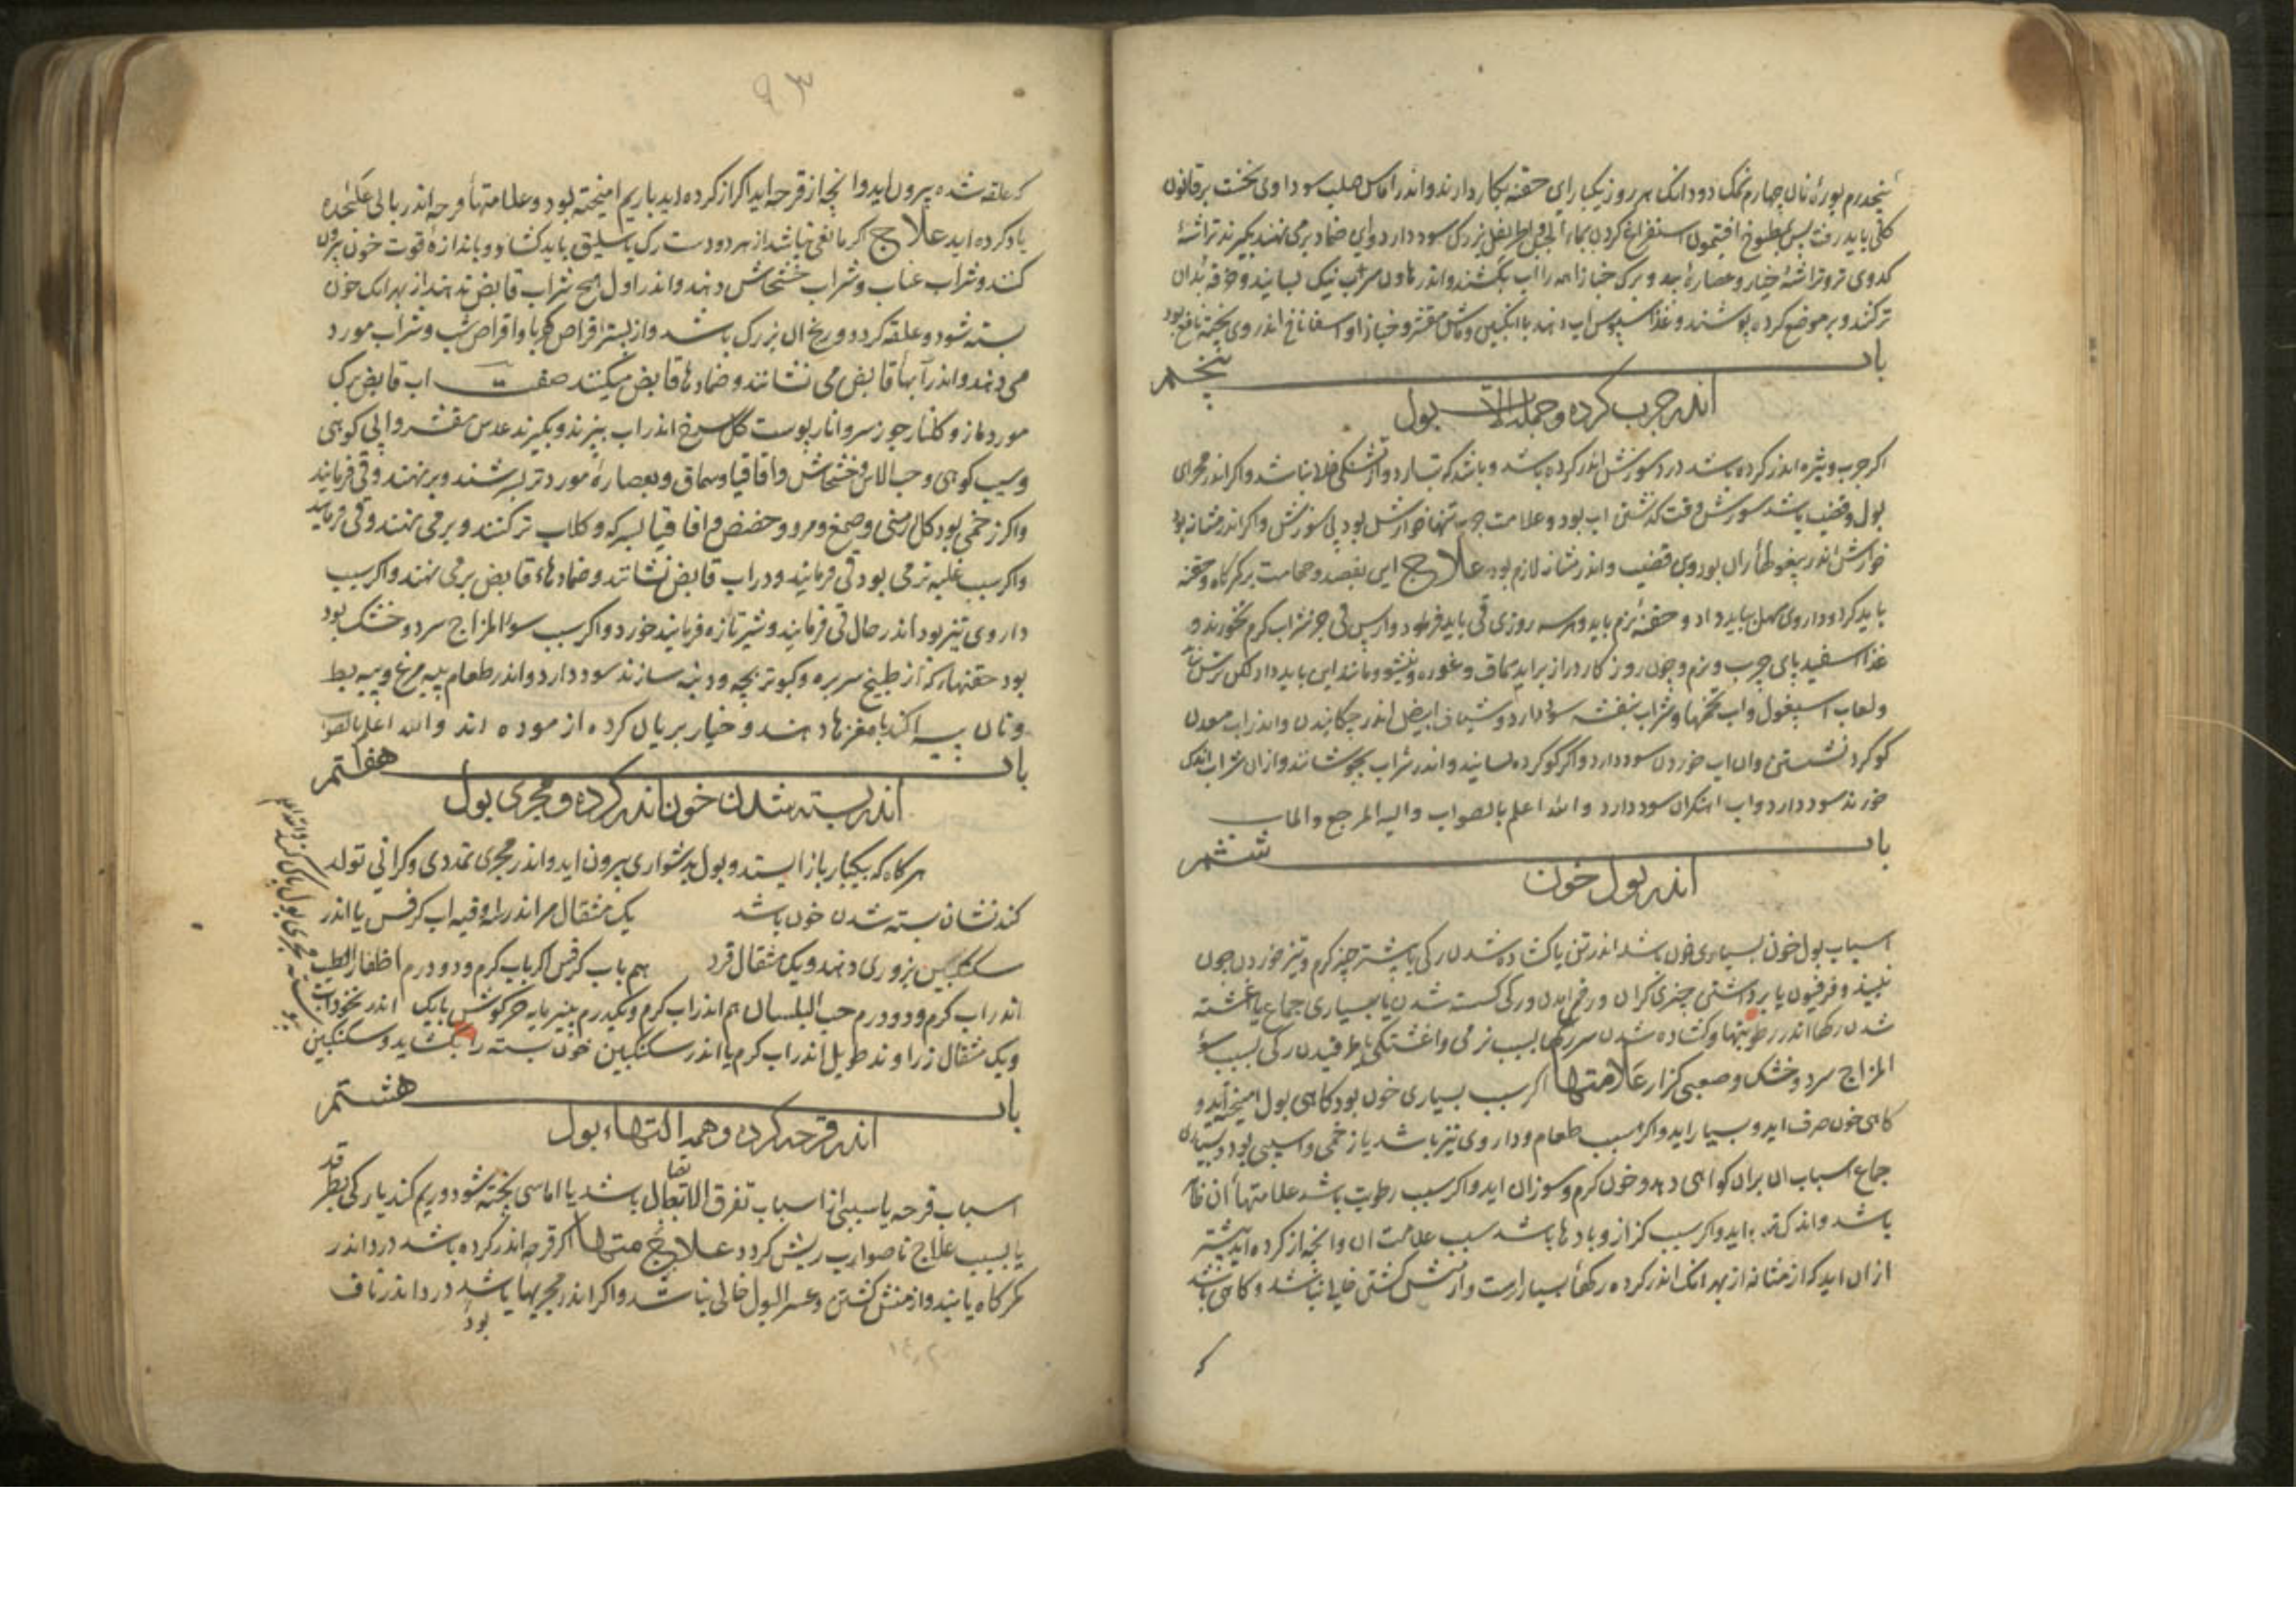 پنجدرم بورهٔ نان چهارم نمک دودانک هر روز یکبار این حقنه بکار دارند واندر اماس صلب سوداوی نخست برقانون
کلی باید رفت پس بمطبوخ افتیمون استفراغ کردن بماء الجبن واطریفل بزرک سود دارد واین ضماد برمی نهند بکیرند تراشهٔ
کدوی تر وتراشهٔ خیار وعصارهٔ بید وبرک خبازی همه را اب بکشند واندر هاون سرب نیک بسایند وخرقه بدان
تر کنند وبر موضع کرده پوشند وغذا سبوس اب دهند با انکبین وماش مقشر وخبازی واسفاناخ اندر وی پخته نافع بود
باب پنجم
اندر جرب کرده وجمله الات بول
اکر جرب وبثره اندر کرده باشد درد سوزش اندر کرده باشد وباشد که تب ارد واز تشنکی خالی نباشد واکر اندر مجرای
بول وقضیب باشد سوزش وقت کذشتن اب بود وعلامت جرب تنها خوارش بود بی سوزش واکر اندر مثانه بود
خوارش اندر بیغوله ران بود وبن قضیب واندر مثانه لازم بود علاج این بفصد وحجامت بر کمرکاه وحقنه
باید کرد وداروی مسهل بباید داد وحقنهٔ نرم باید وهر سه روزی قی باید فرمود واز پس قی جز شراب کرم نخورند و
غذا اسفیدبای چرب ونرم وچون روزکار دراز براید سماق وغوره ونیشو ومانند این باید داد لکن ترش نباشد
ولعاب اسپغول واب تخمها وشراب بنفشه سود دارد وشیاف ابیض اندر چکانیدن واندر اب معدن
کوکرد نشستن وان اب خوردن سود دارد واکر کوکرد بسایند واندر شراب بجوشانند وازان شراب اندکی
خورند سود دارد واب اهنکران سود دارد والله اعلم بالصواب والیه المرجع والماب
باب ششم
اندر بول خون
اسباب بول خون بسیاری خون باشد اندر تن یا کشاده شدن رکی یا پیشتر چیز کرم وتیز خوردن چون
نبیذ وفرفیون یا برداشتن چیزی کران ورخم امدن ورکی کسسته شدن یا بسیاری جماع یا اغشته
شدن رکها اندر رطوبتها وکشاده شدن سر رکها بسبب نرمی واغشتکی یا طرقیدن رکی بسبب سوء
المزاج سرد وخشک وصعبی کزاز علامتها اکر سبب بسیاری خون بود کاهی بول امیخته آید و
کاهی خون صرف اید وبسیار اید واکر سبب طعام وداروی تیز باشد یا زخمی واسیبی بود وبسیاری
جماع اسباب ان بران کواهی دهد وخون کرم وسوزان اید واکر سبب رطوبت باشد علامتهاء ان ظاهر
باشد واندک اید واکر سبب کزاز وبادها باشد سبب علامت ان وانچه از کرده اید بیشتر
ازان اید که از مثانه از بهر انک اندر کرده رکهاء بسیارست واز منش کشتن خالی نباشد وکاهی باشد
که
٩٣
که علقه شده بیرون اید وانچه از قرحه اید اکر از کرده اید باریم امیخته بود وعلامتهاء قرحه اندر بابی علیحده
یاد کرده اید علاج اکر مانعی نباشد از هر دو دست رک باسلیق باید کشاد وباندازهٔ قوت خون بیرون
کنند وشراب عناب وشراب خشخاش دهند واندر اول هیچ شراب قابض ندهند از بهر انک خون
بسته شود وعلقه کردد ورنج ان بزرک باشد واز پستر اقراص کهربا واقراص شب وشراب مورد
می دهند واندر آبهاء قابض می نشانند وضمادهاء قابض میکنند صفت اب قابض برک
مورد مازو کلنار جوز سرو انار پوست کل سرخ اندر اب بپزند وبکیرند عدس مقشر وابی کوهی
وسیب کوهی وحب الاس وخشخاش واقاقیا وسماق وبعصارهٔ مورد تر بسرشند وبرنهند وقی فرمایند
واکر زخمی بود کل ارمنی وصمغ ومرو وحضض واقاقیا بسرکه وکلاب تر کنند وبرمی نهند وقی فرمایند
واکر سبب غلبه نرمی بود قی فرمایند ودر اب قابض نشانند وضمادهاء قابض برمی نهند واکر سبب
داروی تیز بود اندر حال قی فرمایند وشیر تازه فرمایند خورد واکر سبب سوءالمزاج سرد وخشک بود
بود حقنهاء که از طبیخ سر بره وکبوتر بچه ودنبه سازند سود دارد واندر طعام پیه مرغ وپیه بط
ونان پیه اکند با مغزها دهند وخیار بریان کرده ازموده اند والله اعلم بالصواب
باب هفتم
اندر بسته شدن خون اندر کرده ومجری بول
هرکاه که بیکبار باز ایستد وبول بدشواری بیرون اید واندر مجری تمددی وکرانی تولد
کند نشان بسته شدن خون باشد یک مثقال مر اندر اوقیه اب کرفس یا اندر
سکنکبین بزوری دهند ویک مثقال قرد هم باب کرفس اکر باب کرم ودو درم اظفار الطیب
اندر اب کرم ودو درم حب البلسان هم اندر اب کرم ویکدرم پنیر مایه خرکوش یا یک اندر نخوداب
ویک مثقال زراوند طویل اندر اب کرم یا اندر سکنکبین خون بسته را بکشاید وسکنکبین
باب هشتم
اندر قرحه کرده وهمه التهاء بول
اسباب قرحه یا سببی از اسباب تفرق الاتصال باشد یا اماسی پخته شود وریم کند یا رکی بطرقد
یا بسبب علاج ناصواب ریش کردد علامتها اکر قرحه اندر کرده باشد درد اندر
کمرکاه یابند واز منش کشتن وعسر البول خالی نباشد واکر اندر مجریها باشد درد اندر ناف
بود